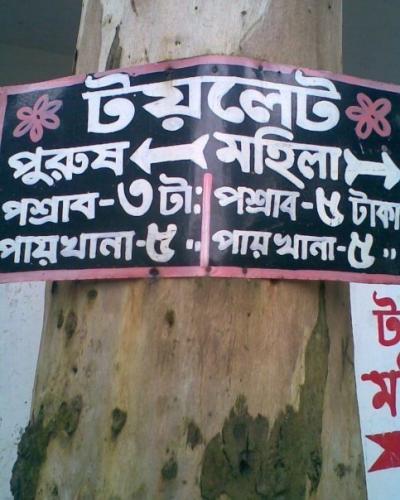 টয়লেট
পুরুষ ← মহিলা →
পশ্রাব-৩ টা: পশ্রাব-৫ টাকা
পায়খানা-৫ " পায়খানা-৫ "
ট
ম